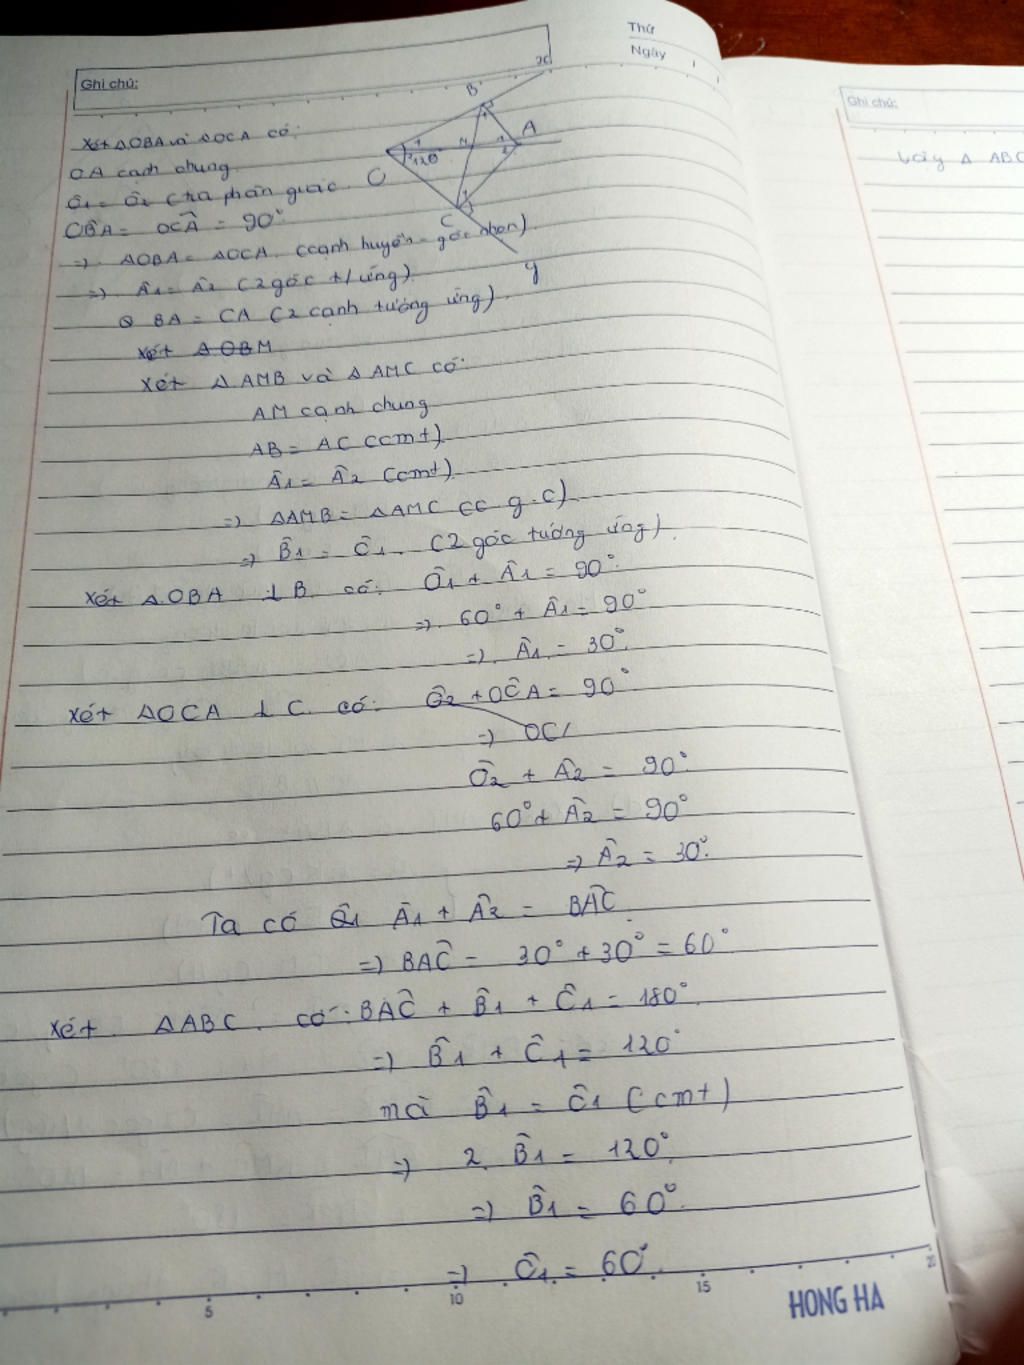 Thứ
Ngày
Ghi chú:
Xét ΔOBA và ΔOCA có:
OA cạnh chung
Ô1 = Ô2 (tia phân giác
OB̂A = OĈA = 90°
=> ΔOBA = ΔOCA (cạnh huyền - góc nhọn)
=> Â1 = Â2 (2 góc t/ứng)
BA = CA (2 cạnh tương ứng)
Xét ΔOBM
Xét ΔAMB và ΔAMC có:
AM cạnh chung
AB = AC (cmt)
Â1 = Â2 (cmt)
=> ΔAMB = ΔAMC (c g.c)
=> B̂1 = Ĉ1. (2 góc tướng ứng)
Xét ΔOBA ⊥ B có: Ô1 + Â1 = 90°
=> 60° + Â1 = 90°
=> Â1 = 30°.
Xét ΔOCA ⊥ C có: Ô2 + OĈA = 90°
=> OC
Ô2 + Â2 = 90°
60° + Â2 = 90°
=> Â2 = 30°.
Ta có Â1 + Â2 = BÂC
=> BÂC = 30° + 30° = 60°
Xét ΔABC. có: BÂC + B̂1 + Ĉ1 = 180°.
=> B̂1 + Ĉ1 = 120°
mà B̂1 = Ĉ1 (cmt)
=> 2. B̂1 = 120°.
=> B̂1 = 60°.
=> Ĉ1 = 60°.
5 10 15 20
HONG HA
x
B
1
A
1
2
M
O
1
2
120°
C
1
y
Ghi chú:
Vậy Δ ABC